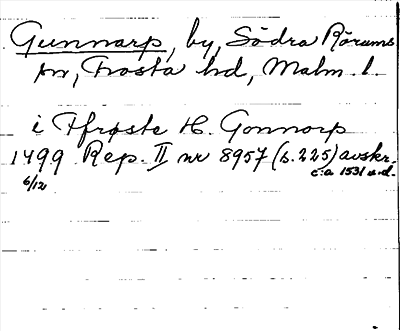 Gunnarp, by, Södra Rörums
sn, Frosta hd, Malm. l.
i Ffrøste H. Gonnorp
1499 Rep. II nr 8957 (s. 225) avskr.
6/12 c:a 1531 u.d.